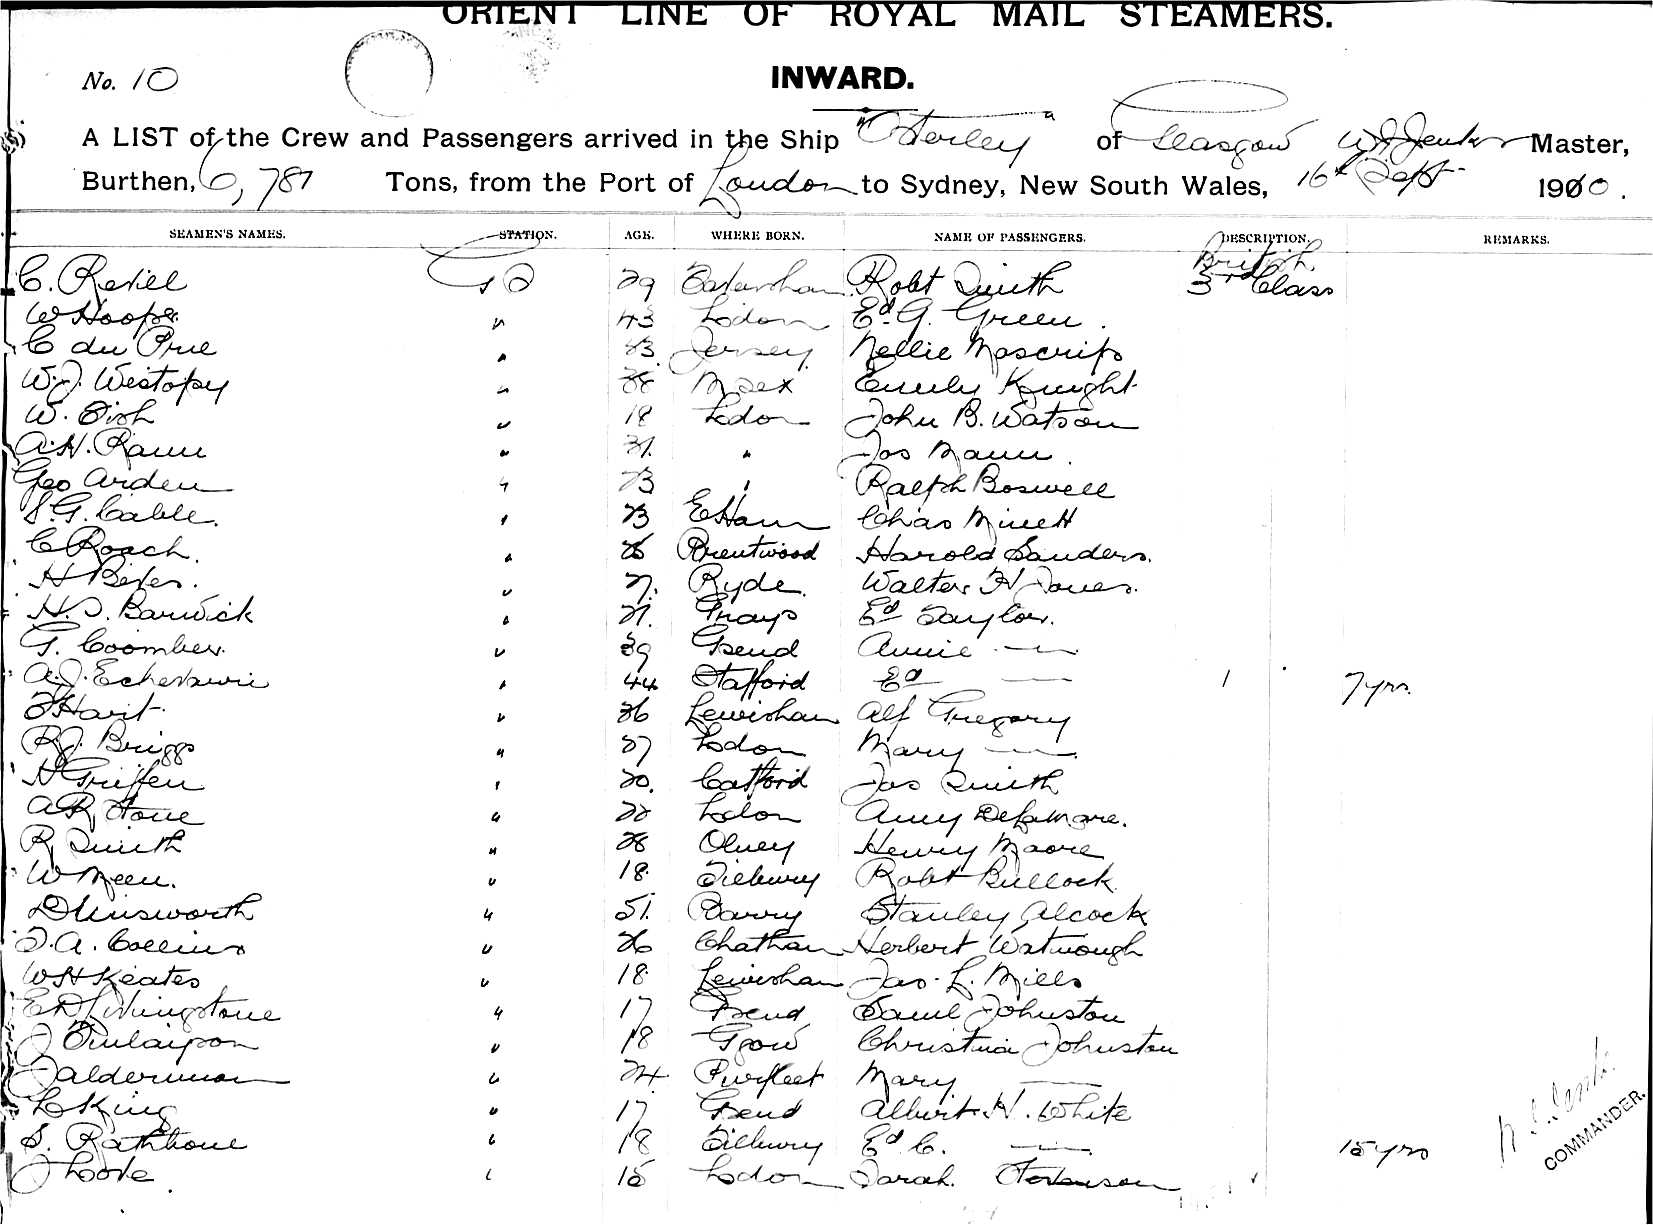 ORIENT LINE OF ROYAL MAIL STEAMERS.
No. 10
INWARD.
A LIST of the Crew and Passengers arrived in the Ship "Osterley" of Glasgow Master,
Burthen, 6,787 Tons, from the Port of London to Sydney, New South Wales, 16th Sept 1910.
SEAMEN'S NAMES. STATION. AGE. WHERE BORN. NAME OF PASSENGERS. DESCRIPTION. REMARKS.
British
C. Revill 29 Robt Smith 3rd Class
W Hooper " 43 Lodon Ed. G. Green.
C du Prue " 23 Jersey Nellie Moscrip
W. J. Westopy " Msex Emily Knight
W. Dish " 18 Lodon John B. Watson
A. H. Rann " 21. " Jas Mann.
Geo Arden " 23 " Ralph Boswell
S. G. Cable. " 23 E Ham Chas Minett
C Roach. " 26 Brentwood Harold Sanders.
H " 27. Ryde. Walter H Jones.
H. S. Barwick " 21. Grays Ed Taylor.
G. Coomber. " 39 Gsend Annie —
A. J. " 44 Stafford Ed — 1 7 yrs.
Hart. " 36 Lewisham Alf Gregory
R. J. Briggs " 27 Lodon Mary —
H Griffen " 20. Catford Jas Smith
A R Stone " 22 Lodon Amy Delamare.
R Smith " 28 Olney Henry Moore
W Meen. " 18. Tilbury Robt Bullock
D Unsworth " 51. Barry Stanley Alcock
T. A. Collins " 26 Chatham Herbert Watmough
W H Keates " 18. Lewisham Jas. L. Mills
E D Livingstone " 17 Gsend Saml Johnston
J " 18 Ggow Christina Johnston
J Alderman " 24. Purfleet Mary —
L King " 17 Gsend Albert H. White
S. Rathbone " 18 Tilbury Ed C. — 15 yrs
J Love " 15 Lodon Sarah. Stevenson
COMMANDER.